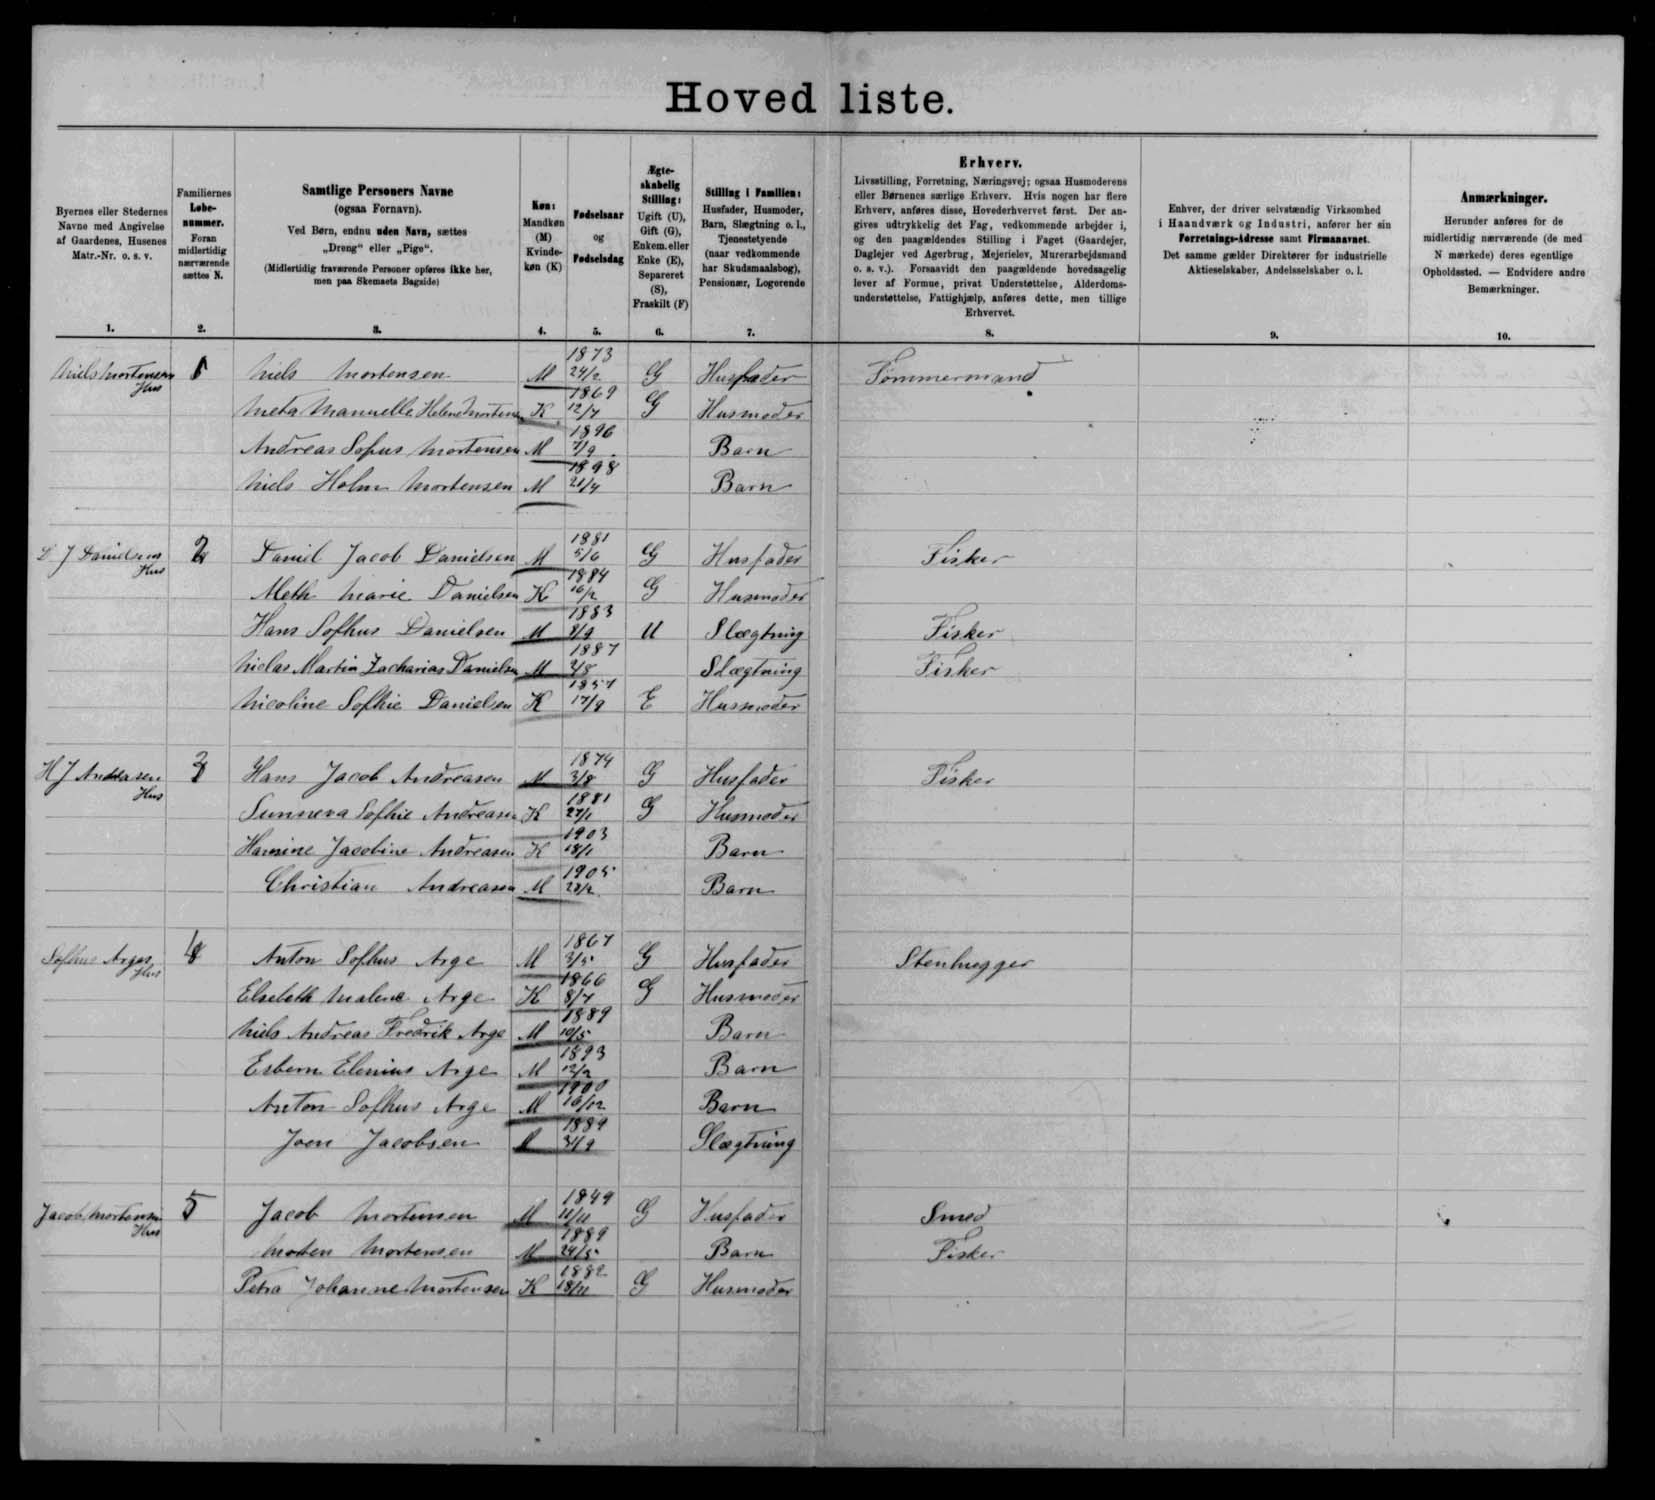 Hoved liste.
Byernes eller Stedernes
Navne med Angivelse
af Gaardenes, Husenes
Matr.-Nr. o. s. v.
1.
Familiernes
Løbe-
nummer.
Foran
midlertidig
nærværende
sættes N.
2.
Samtlige Personers Navne
(ogsaa Fornavn).
Ved Børn, endnu uden Navn, sættes
„Dreng“ eller „Pige“.
(Midlertidig fraværende Personer opføres ikke her,
men paa Skemaets Bagside)
3.
Køn:
Mandkøn
(M)
Kvinde-
køn (K)
4.
Fødselsaar
og
Fødselsdag
5.
Ægte-
skabelig
Stilling:
Ugift (U),
Gift (G),
Enkem. eller
Enke (E),
Separeret
(S),
Fraskilt (F)
6.
Stilling i Familien:
Husfader, Husmoder,
Barn, Slægtning o. l.,
Tjenestetyende
(naar vedkommende
har Skudsmaalsbog),
Pensionær, Logerende
7.
Erhverv.
Livsstilling, Forretning, Næringsvej; ogsaa Husmoderens
eller Børnenes særlige Erhverv. Hvis nogen har flere
Erhverv, anføres disse, Hovederhvervet først. Der an-
gives udtrykkelig det Fag, vedkommende arbejder i,
og den paagældendes Stilling i Faget (Gaardejer,
Daglejer ved Agerbrug, Mejerielev, Murerarbejdsmand
o. s. v.). Forsaavidt den paagældende hovedsagelig
lever af Formue, privat Understøttelse, Alderdoms-
understøttelse, Fattighjælp, anføres dette, men tillige
Erhvervet.
8.
Enhver, der driver selvstændig Virksomhed
i Haandværk og Industri, anfører her sin
Forretnings-Adresse samt Firmanavnet.
Det samme gælder Direktører for industrielle
Aktieselskaber, Andelsselskaber o. l.
9.
Anmærkninger.
Herunder anføres for de
midlertidig nærværende (de med
N mærkede) deres egentlige
Opholdssted. — Endvidere andre
Bemærkninger.
10.
Niels Mortensen Hus 1 Niels Mortensen M 1873 24/2 G Husfader Tømmermand
Meta Manuelle Helene Mortensen K 1869 12/7 G Husmoder
Andreas Sofus Mortensen M 1896 7/9 Barn
Niels Holm Mortensen M 1898 21/4 Barn
D J Danielsens Hus 2 Daniel Jacob Danielsen M 1881 5/6 G Husfader Fisker
Meth Marie Danielsen K 1884 16/2 G Husmoder
Hans Sofhus Danielsen M 1883 8/9 U Slægtning Fisker
Niclas Martin Zacharias Danielsen M 1887 2/8 Slægtning Fisker
Nicoline Sofhie Danielsen K 1857 17/9 E Husmoder
H J Andreasen Hus 3 Hans Jacob Andreasen M 1874 3/8 G Husfader Fisker
Sunneva Sofhie Andreasen K 1881 27/1 G Husmoder
Hansine Jacobine Andreasen K 1903 18/1 Barn
Christian Andreasen M 1905 28/2 Barn
Sofhus Arges Hus 4 Anton Sofhus Arge M 1867 3/5 G Husfader Stenhugger
Elsebeth Malene Arge K 1866 8/7 G Husmoder
Niels Andreas Fredrik Arge M 1889 10/5 Barn
Esbern Elenius Arge M 1893 12/2 Barn
Anton Sofhus Arge M 1900 16/12 Barn
Joen Jacobsen M 1889 Slægtning
Jacob Mortensen Hus 5 Jacob Mortensen M 1849 11/11 G Husfader Smed
Morten Mortensen M 1889 24/5 Barn Fisker
Petra Johanne Mortensen K 1882 18/11 G Husmoder